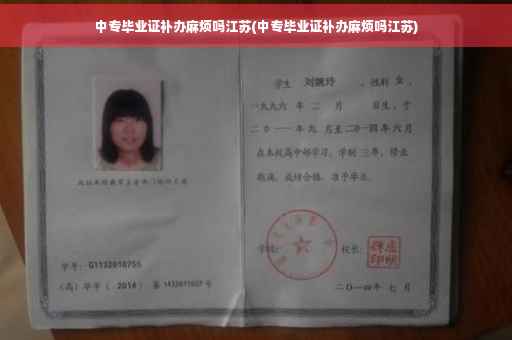 中专毕业证补办麻烦吗江苏(中专毕业证补办麻烦吗江苏)
学号: G1132010755
(高) 毕字 ( 2014 ) 第 1432011027 号
学生 刘婉玲 , 性别 女 ,
一九九六 年 二 月 日生, 于
二0一一 年 九 月至 二0一四 年 六 月
在本校高中部学习, 学制 三 年, 修业
期满, 成绩合格, 准予毕业。
学校: 校长:
二〇一四 年 七 月